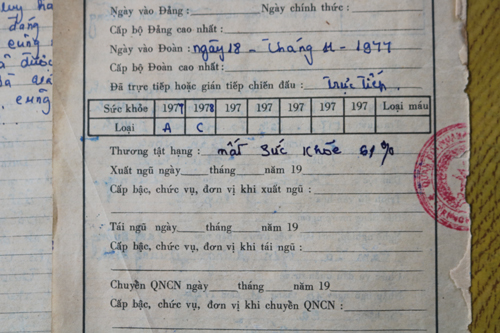 Ngày vào Đảng : Ngày chính thức :
Cấp bộ Đảng cao nhất :
Ngày vào Đoàn : ngày 18 - Tháng 11 - 1977
Cấp bộ Đoàn cao nhất :
Đã trực tiếp hoặc gián tiếp chiến đấu : Trực Tiếp
Sức khỏe 1977 1978 197 197 197 197 197 Loại máu
Loại A C
Thương tật hạng : mất Sức Khỏe 61 %
Xuất ngũ ngày tháng năm 19
Cấp bậc, chức vụ, đơn vị khi xuất ngũ :
Tái ngũ ngày tháng năm 19
Cấp bậc, chức vụ, đơn vị khi tái ngũ :
Chuyển QNCN ngày tháng năm 19
Cấp bậc, chức vụ, đơn vị khi chuyển QNCN :